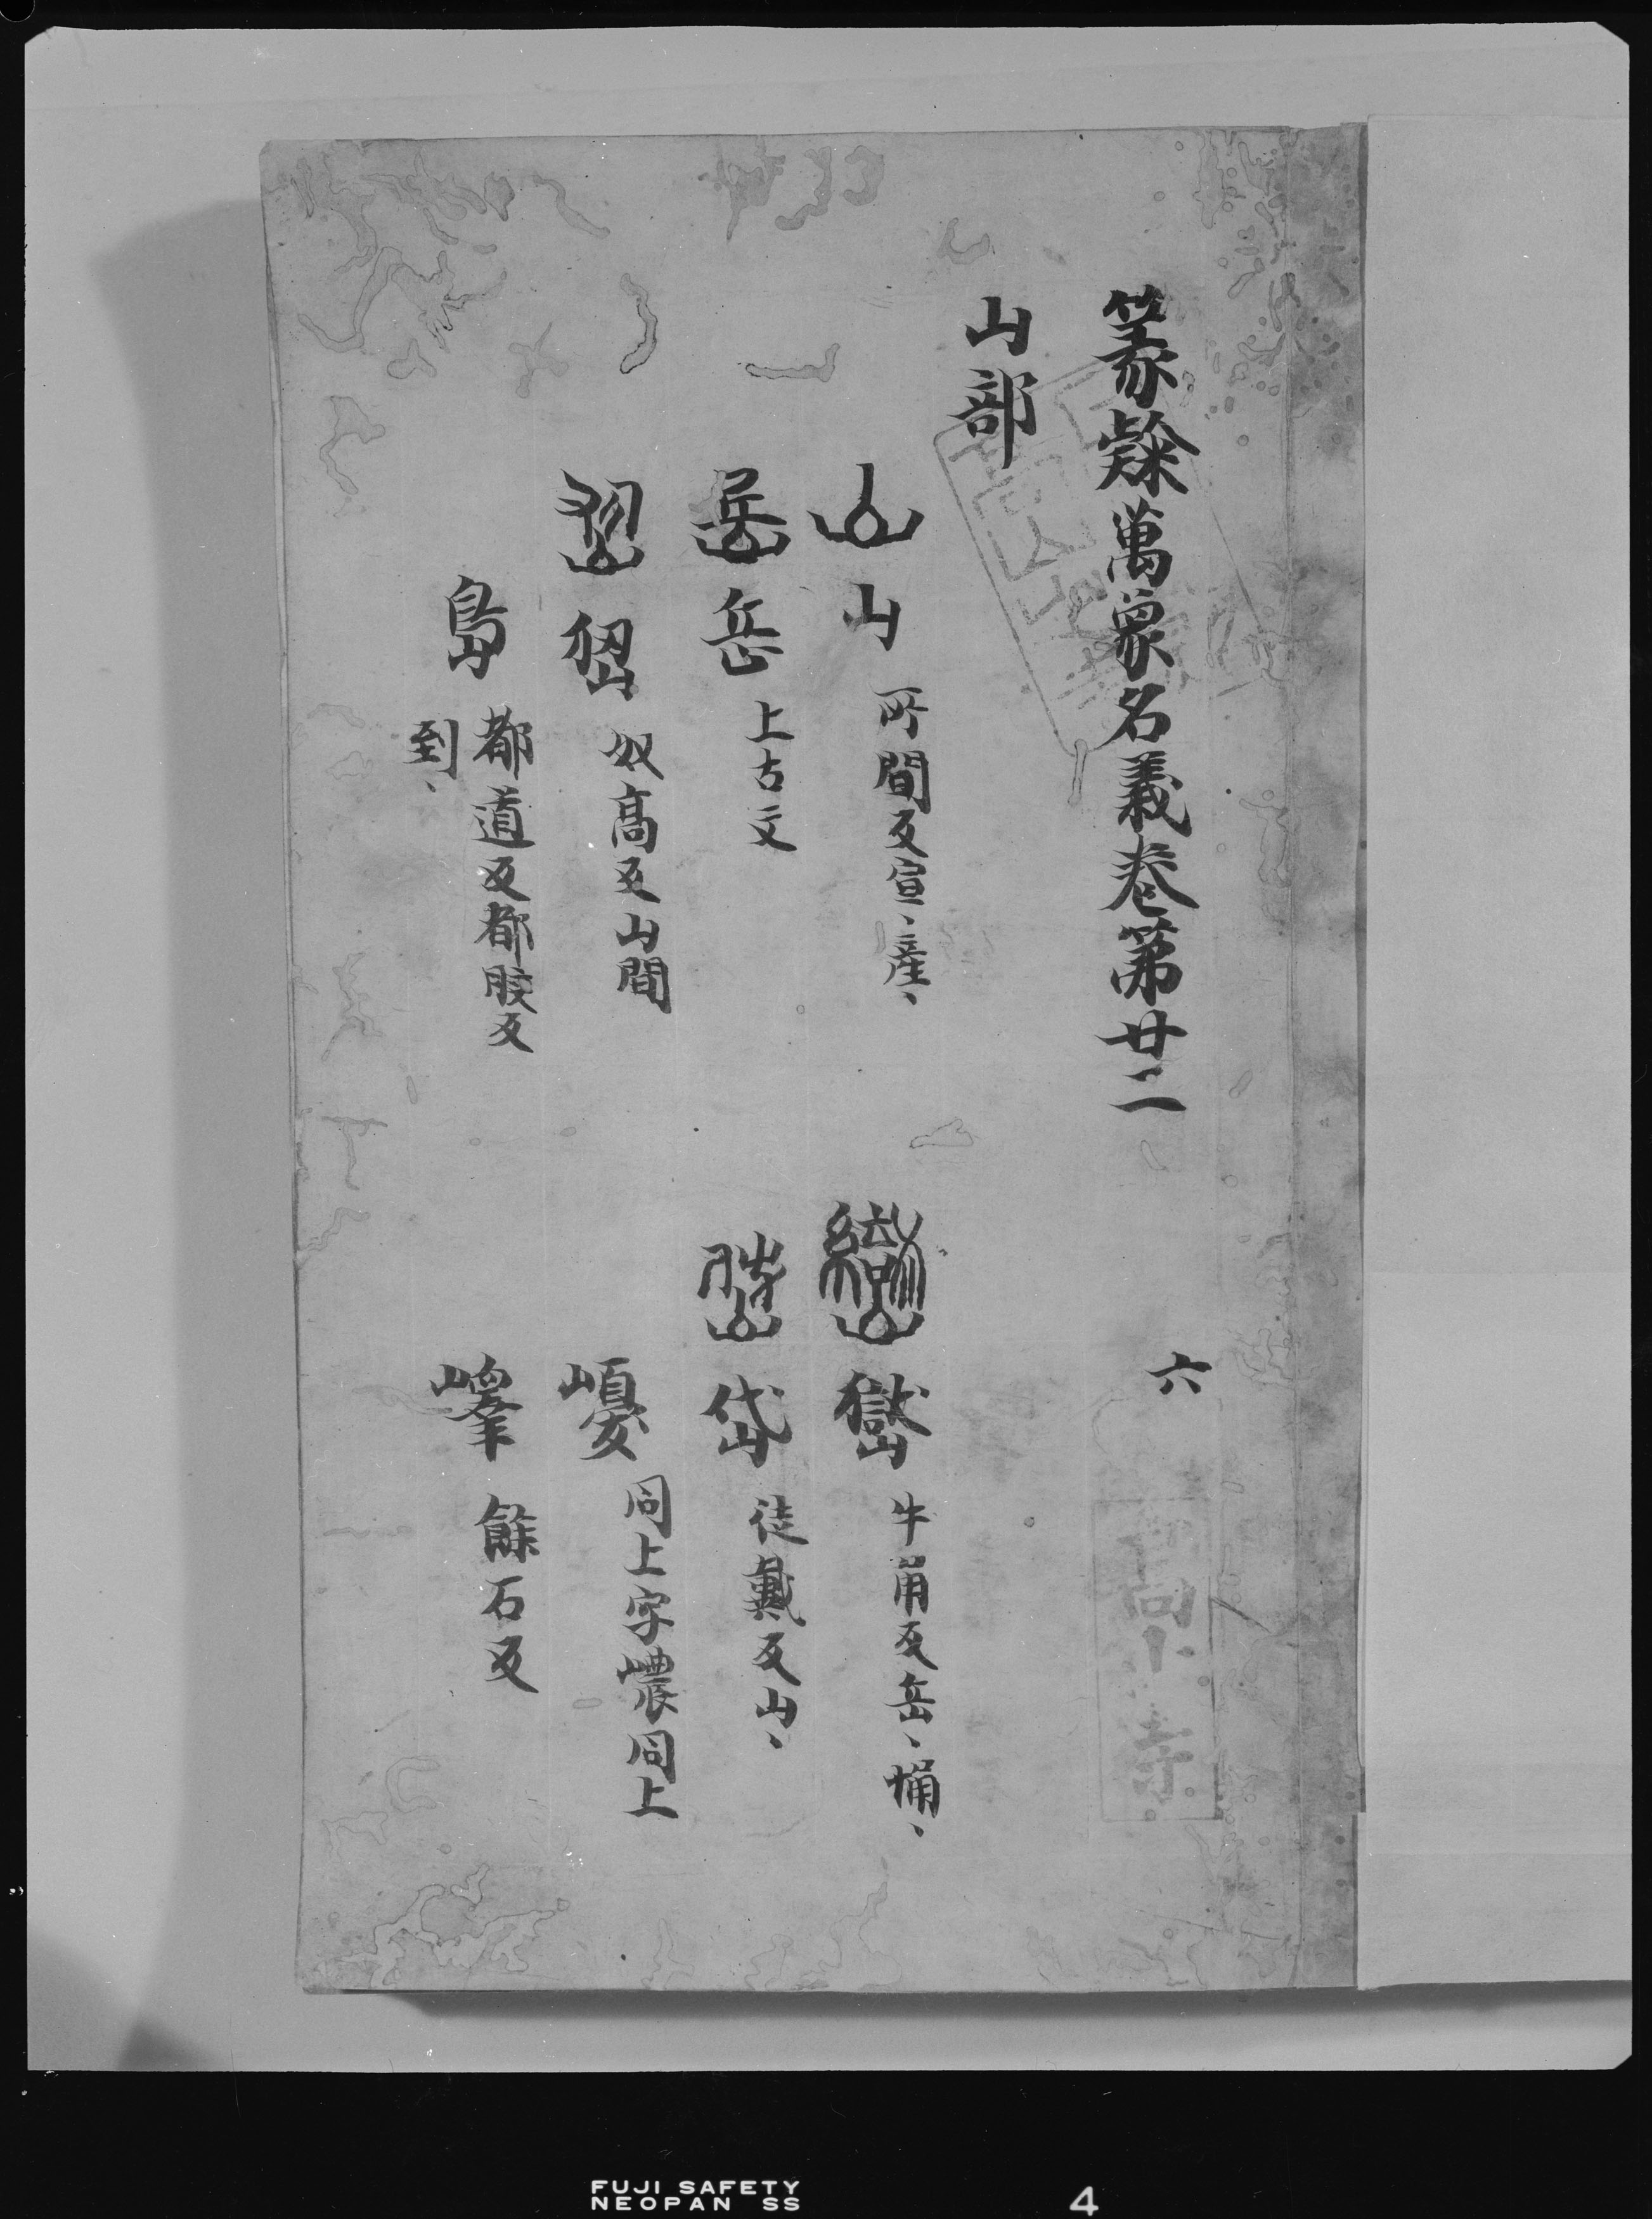 篆隸萬象名義卷第廿二 六
山部
山 所間反宣、產、 嶽 牛角反岳、埇、
岳 上古文 岱 徒戴反山、
峱 奴高反山間 㠜 同上字㠢同上
島 都道反都胶反到、 嶧 餘石反
高山寺
FUJI SAFETY
NEOPAN SS
4